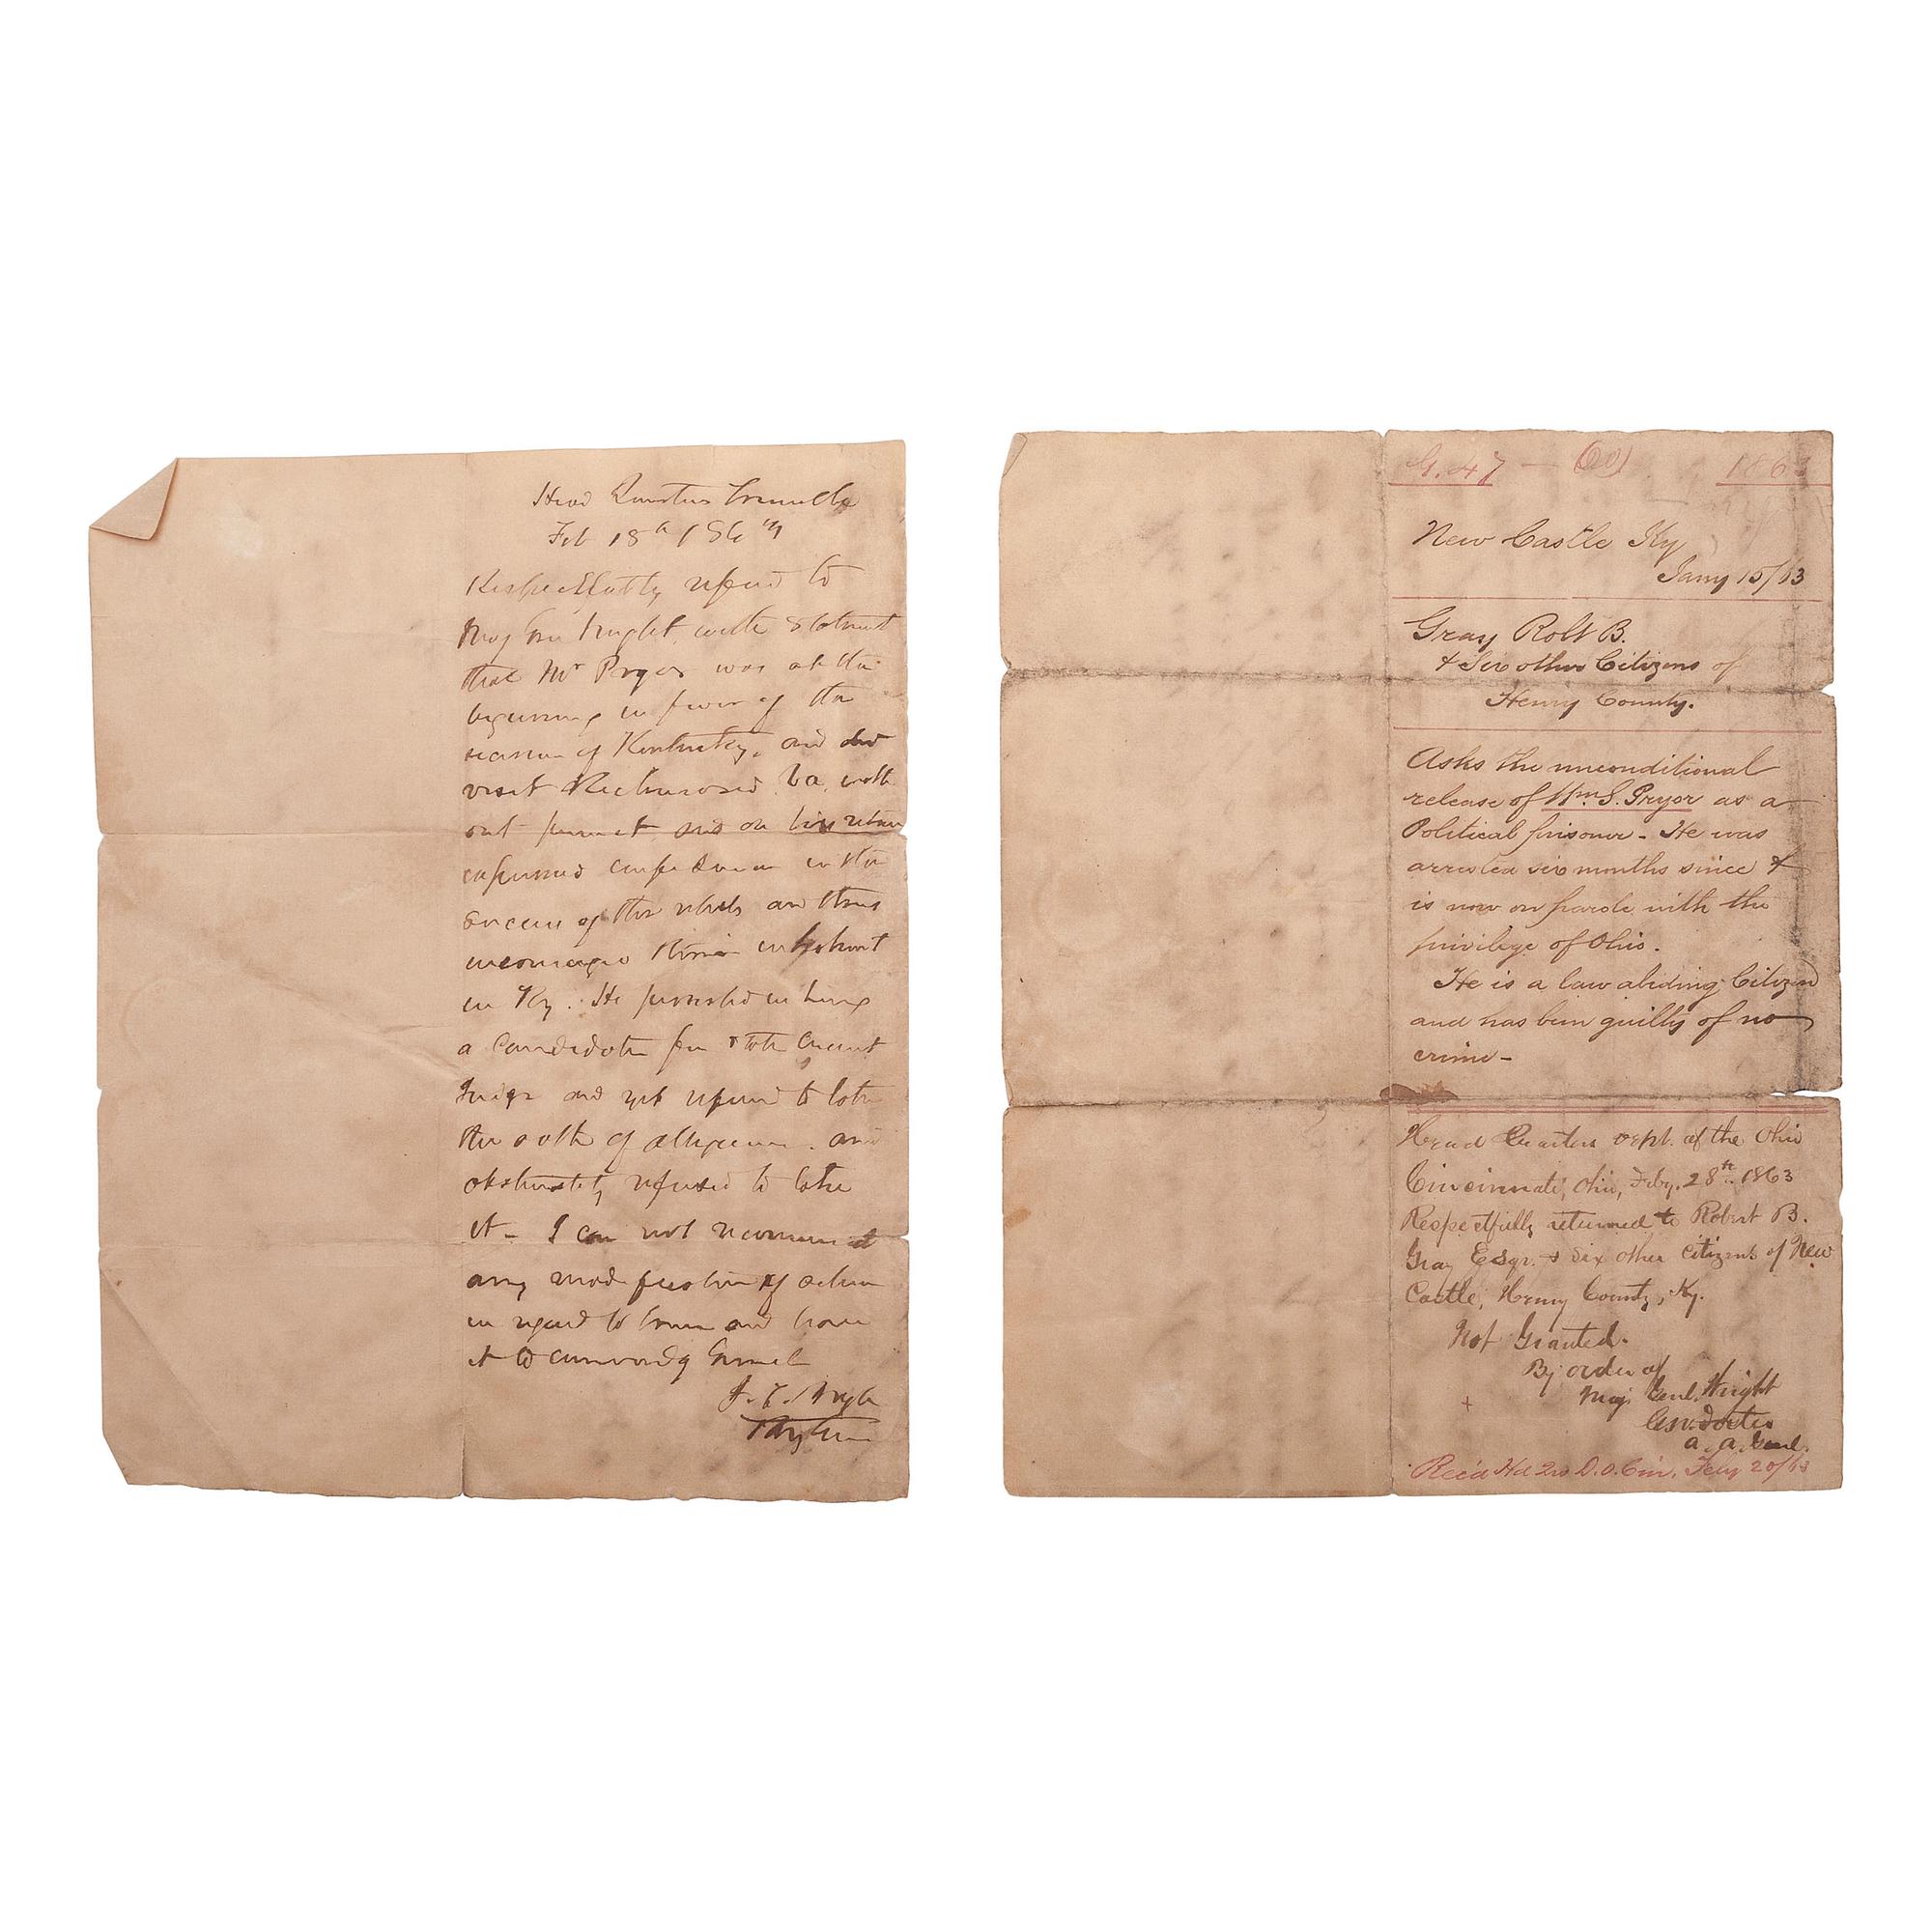 Head Quarters
Feb 18th 186
Respectfully refered to
Maj Gen Wright with Statement
that Mr Pryor was at the
beginning in favor of the
secession of Kentucky, and did
visit Richmond Va with
out permit and on his return
expressed confidence in the
success of the rebels and thus
in Ky. He persisted in being
a Candidate for
Judge and yet refused to take
the oath of allegiance. and
obstinately refused to take
it - I can not recommend
any modification of action
in regard to him and have
it
G. 47 — (60) 1863
New Castle Ky
Jany 15/63
Gray Robt B.
+ Six other Citizens of
Henry County.
Asks the unconditional
release of Wm S. Pryor as a
Political prisoner - He was
arrested six months since &
is now on parole with the
privilege of Ohio.
He is a law abiding Citizen
and has been guilty of no
crime -
Head Quarters Dept. of the Ohio
Cincinnati, Ohio, Feby. 28th 1863
Respectfully returned to Robert B.
Gray Esqr. + Six other citizens of New
Castle, Henry County, Ky.
Not Granted.
By order of
Maj. Genl. Wright
A. A. Genl.
Rec'd Hd Qrs D. O. Cin. Feby 20/63